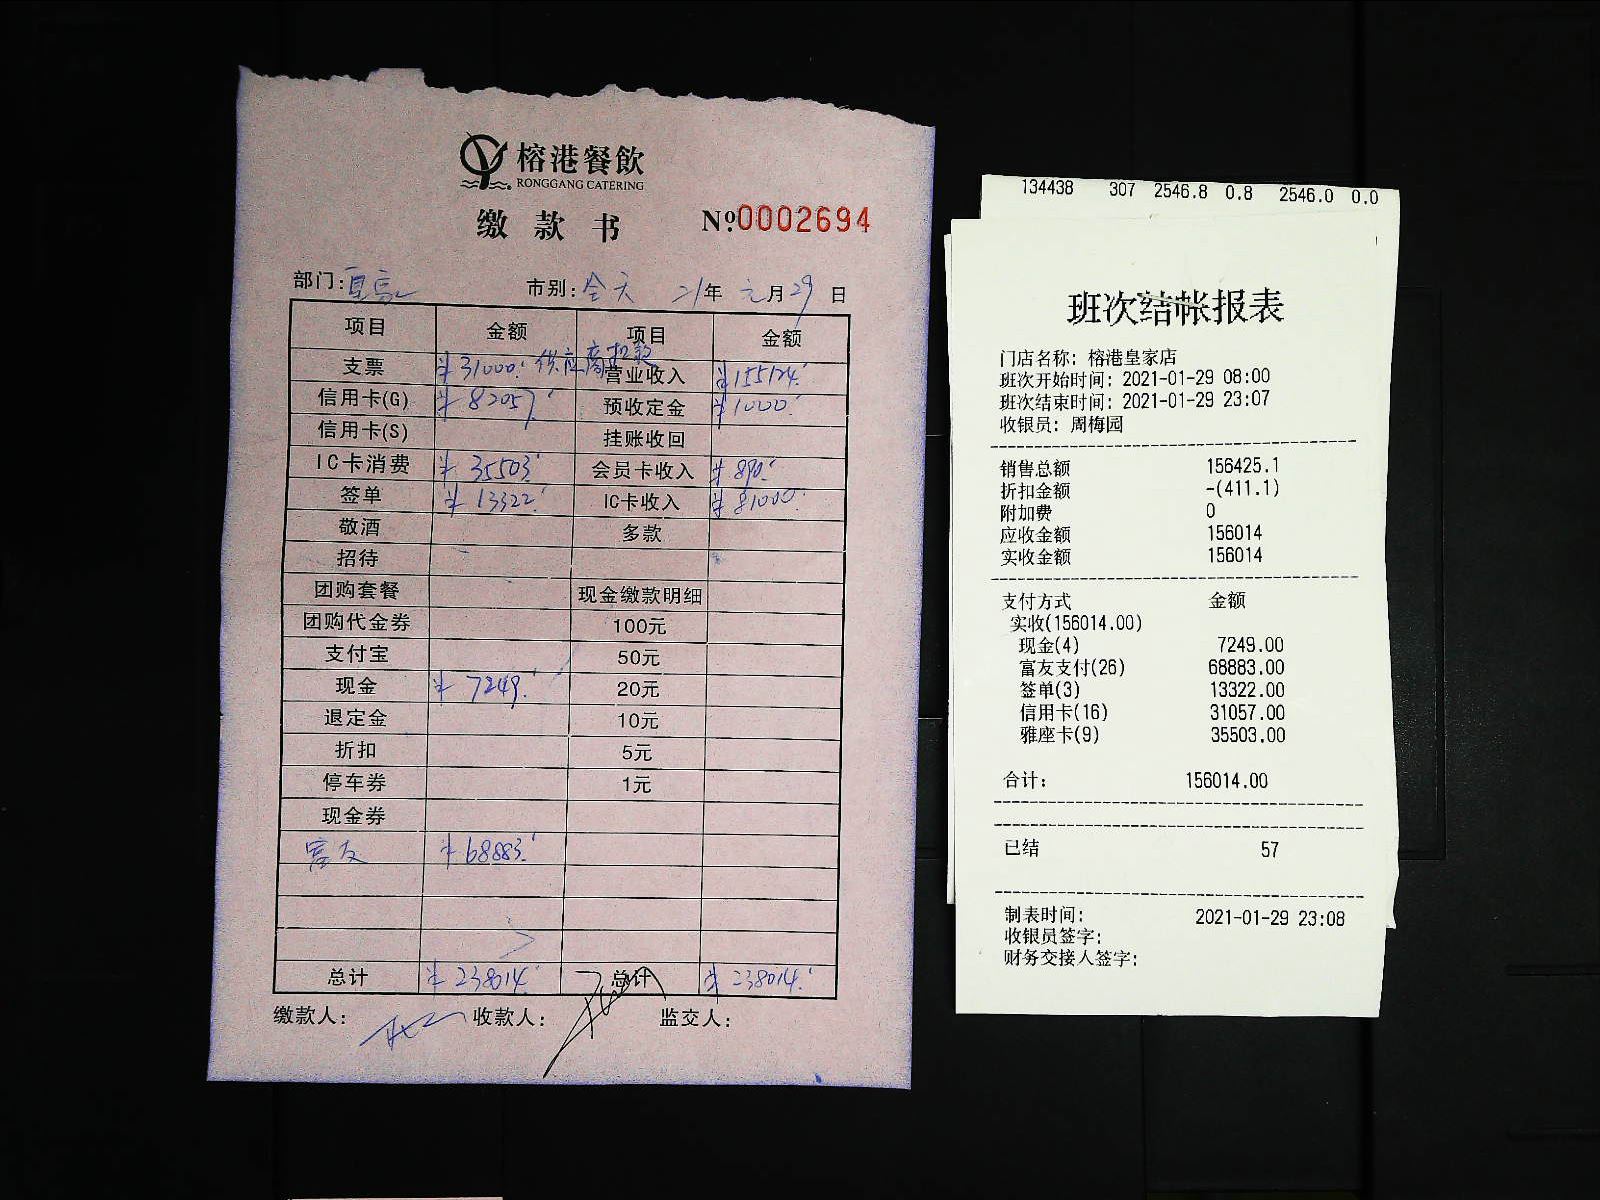 榕港餐飲
RONGGANG CATERING
缴款书 №0002694
部门: 市别:全天 21年 元月29日
项目 金额 项目 金额
支票 ¥31000. 供应商扣款 营业收入 ¥155124.
信用卡(G) ¥82057. 预收定金 ¥1000.
信用卡(S) 挂账收回
IC卡消费 ¥35503. 会员卡收入 ¥890.
签单 ¥13322. IC卡收入 ¥81000.
敬酒 多款
招待
团购套餐 现金缴款明细
团购代金券 100元
支付宝 50元
现金 ¥7249. 20元
退定金 10元
折扣 5元
停车券 1元
现金券
富友 ¥68883.
总计 ¥238014. 总计 ¥238014.
缴款人: 收款人: 监交人:
134438 307 2546.8 0.8 2546.0 0.0
班次结帐报表
门店名称: 榕港皇家店
班次开始时间: 2021-01-29 08:00
班次结束时间: 2021-01-29 23:07
收银员: 周梅园
销售总额 156425.1
折扣金额 -(411.1)
附加费 0
应收金额 156014
实收金额 156014
支付方式 金额
实收(156014.00)
现金(4) 7249.00
富友支付(26) 68883.00
签单(3) 13322.00
信用卡(16) 31057.00
雅座卡(9) 35503.00
合计: 156014.00
已结 57
制表时间: 2021-01-29 23:08
收银员签字:
财务交接人签字: